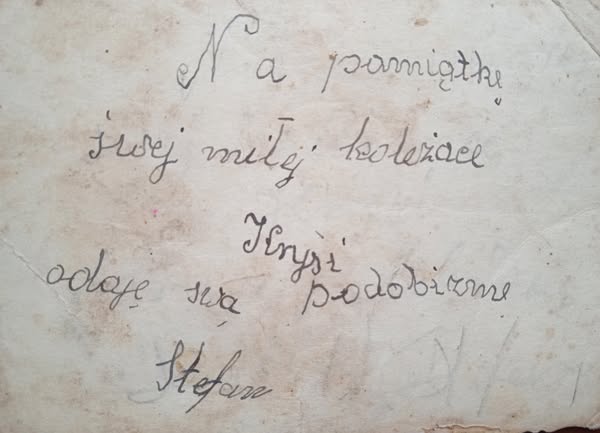 Na pamiątkę
swej miłej koleżace
Krysi
odaję swą podobizme
Stefan